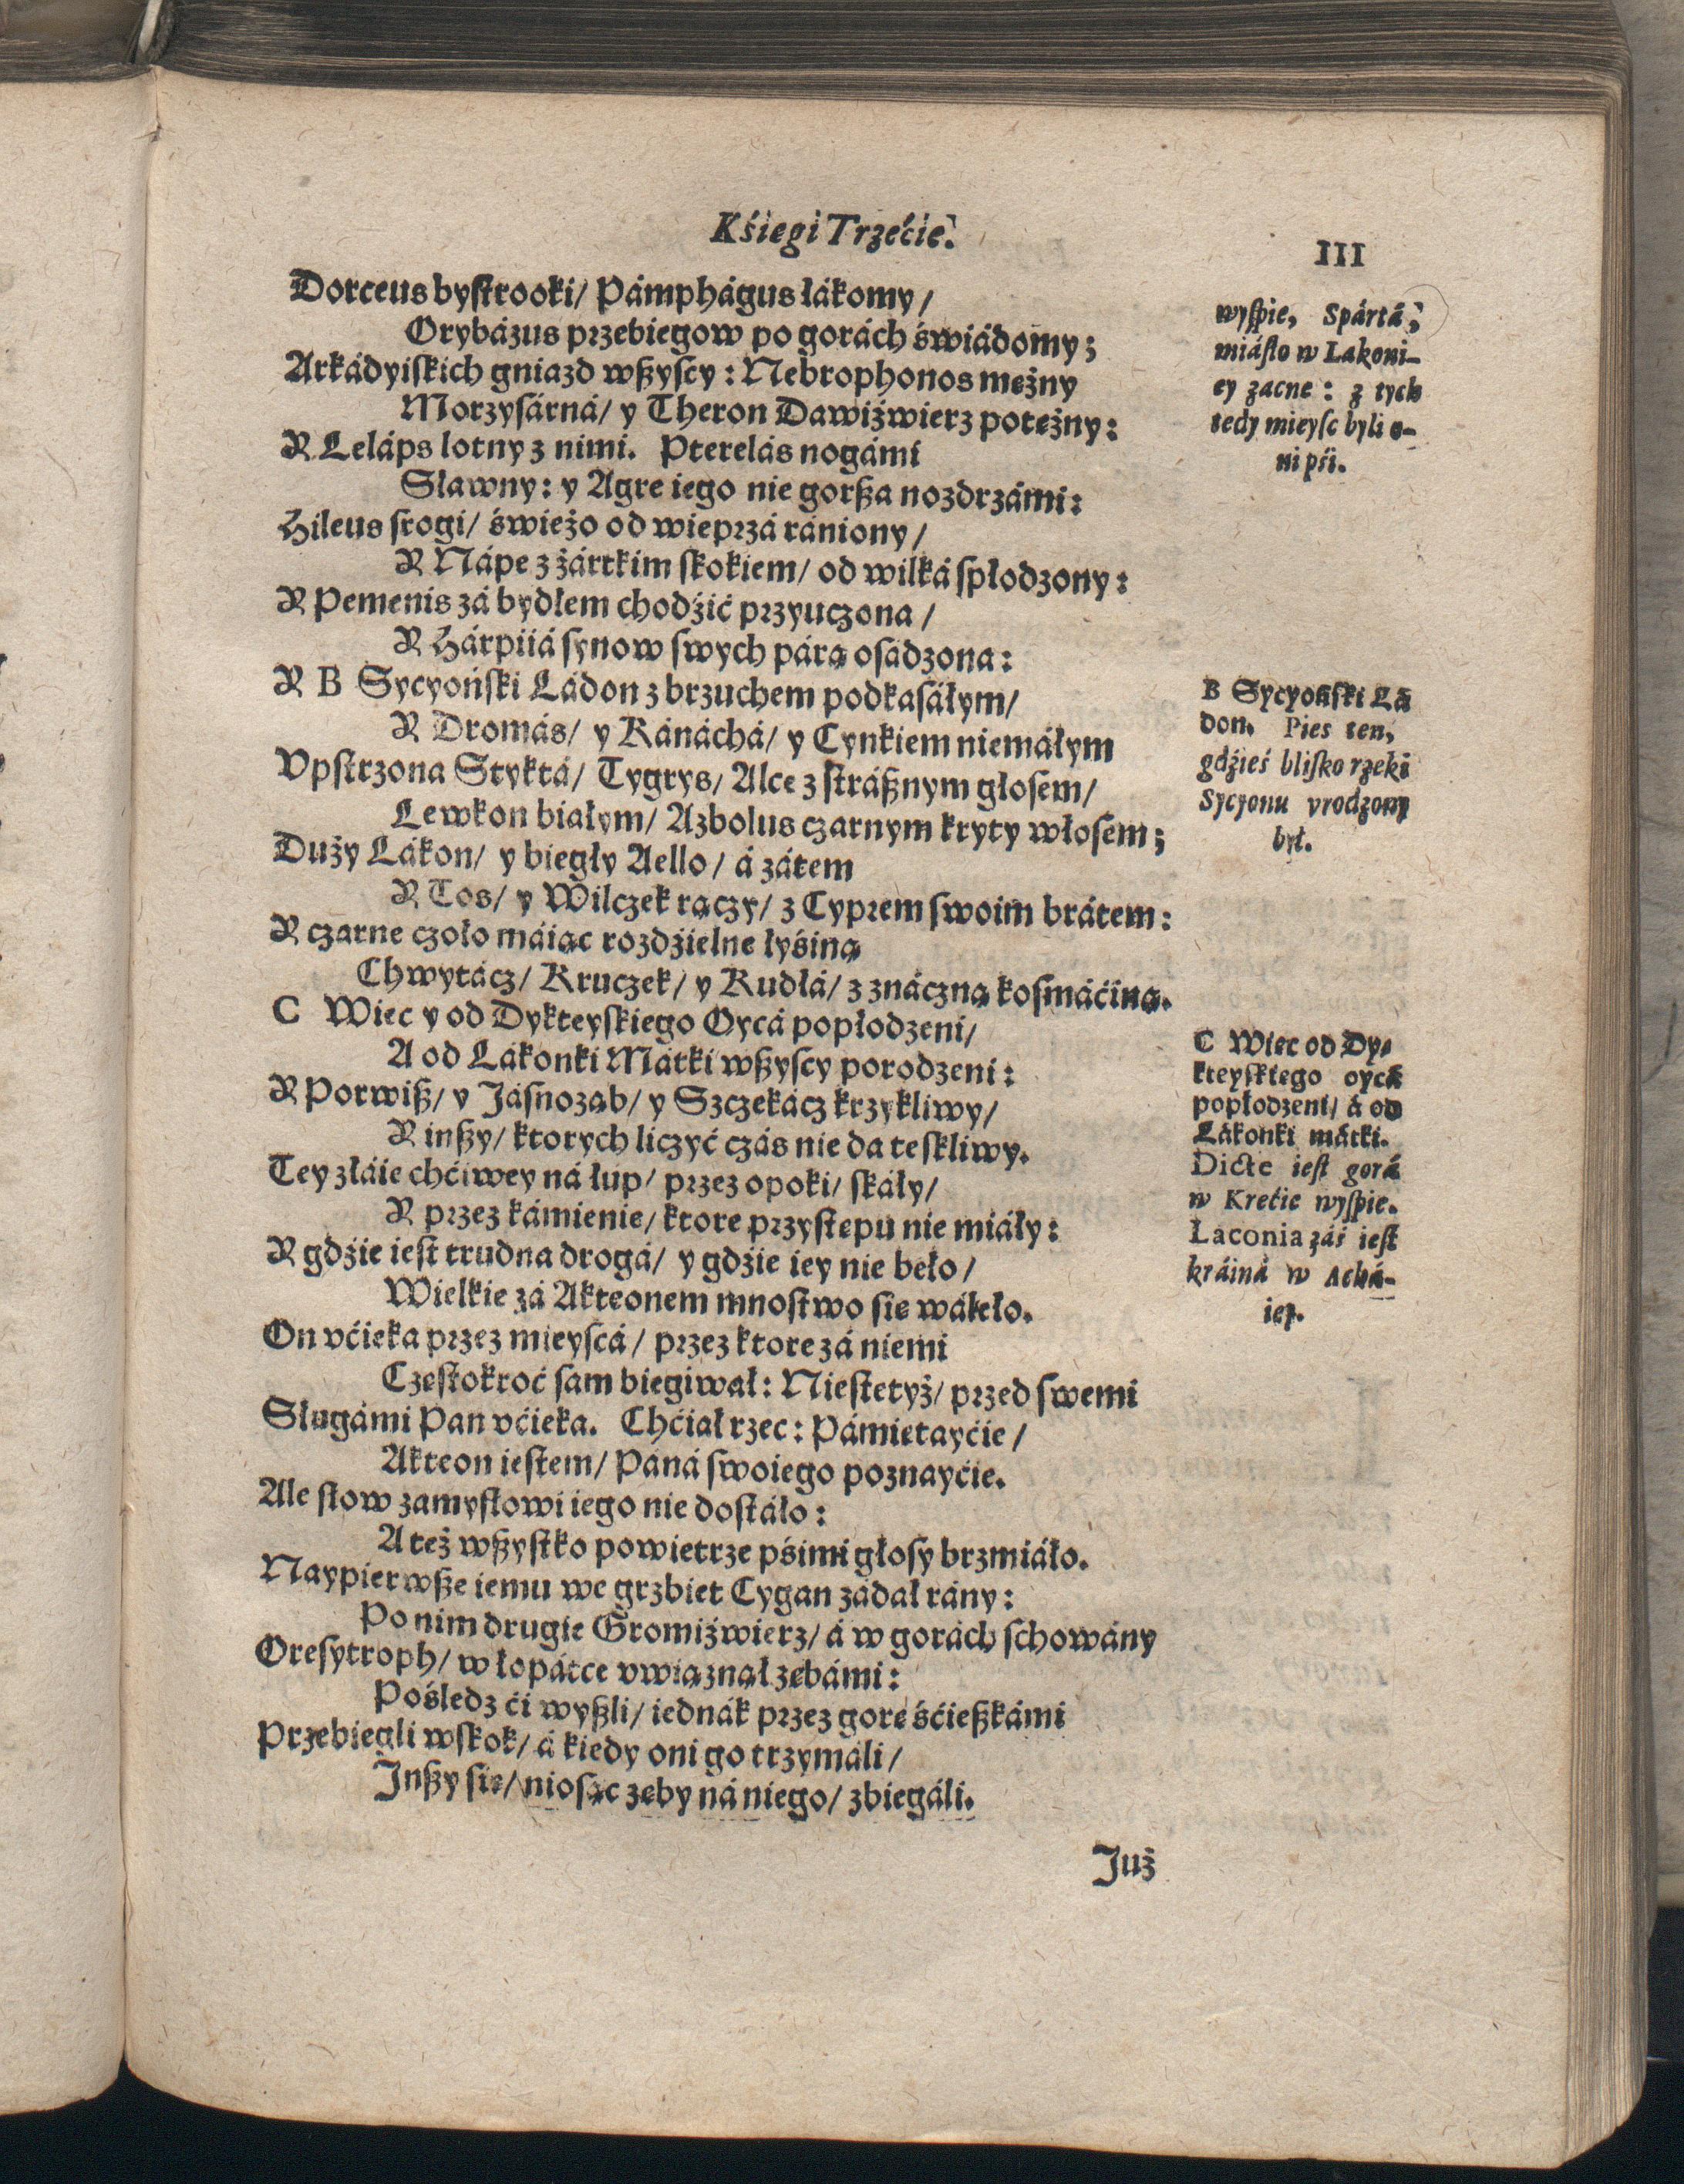 Kśięgi Trzećie.
111
Dorceus bystrooki/ Pámphágus łákomy/
Orybázus przebiegow po gorách świádomy;
Arkádyiſkich gniazd wßyſcy: Nebrophonos mężny
Morzysárná/ y Theron Dawiźwierz potężny:
Y Leláps lotny z nimi. Pterelás nogámi
Sławny: y Agre iego nie gorßa nozdrzámi:
Hileus ſrogi/ świeżo od wieprzá rániony/
Y Nápe z żártkim ſkokiem/ od wilká ſpłodzony:
Y Pemenis zá bydłem chodźić przyuczona/
Y Hárpiiá ſynow ſwych párą osádzona:
Y B Sycyońſki Ládon z brzuchem podkasáłym/
Y Dromás/ y Kánáchá/ y Cynkiem niemáłym
Vpſtrzona Styktá/ Tygrys/ Alce z ſtráßnym głosem/
Lewkon białym/ Azbolus czarnym kryty włosem;
Duży Lákon/ y biegły Aello/ á zátem
Y Tos/ y Wilczek rączy/ z Cyprem ſwoim brátem:
Y czarne czoło máiąc rozdźielne łyśiną
Chwytácz/ Kruczek/ y Kudłá/ z znáczną kosmáćiną.
C Więc y od Dykteyſkiego Oycá popłodzeni/
A od Lákonki Mátki wßyſcy porodzeni:
Y Porwiß/ y Jásnoząb/ y Szczekácz krzykliwy/
Y inßy/ ktorych liczyć czás nie da teſkliwy.
Tey złáie chćiwey ná łup/ przez opoki/ ſkáły/
Y przez kámienie/ ktore przyſtępu nie miáły:
Y gdźie ieſt trudna drogá/ y gdźie iey nie beło/
Wielkie zá Akteonem mnoſtwo się wáleło.
On vćieka przez mieyſcá/ przez ktore zá niemi
Częſtokroć ſam biegiwał: Nieſtetyż/ przed ſwemi
Sługámi Pan vćieka. Chćiał rzec: Pámiętayćie/
Akteon ieſtem/ Páná ſwoiego poznayćie.
Ale słow zamysłowi iego nie doſtáło:
A też wßyſtko powietrze pśimi głosy brzmiáło.
Naypierwße iemu we grzbiet Cygan zádał rány:
Po nim drugie Gromiźwierz/ á w gorách ſchowány
Oresytroph/ w łopátce vwiąznął zębámi:
Pośledz ći wyßli/ iednák przez gorę śćießkámi
Przebiegli wſkok/ á kiedy oni go trzymáli/
Jnßy się/ niosąc zęby ná niego/ zbiegáli.
Już
wyſpie, Spártá,
miáſto w Lakoni-
ey zacne: z tych
tedy mieyſc byli o-
ni pśi.
B Sycyońſki Lá
don. Pies ten,
gdźieś bliſko rzeki
Sycyonu vrodzony
był.
C Więc od Dy-
kteyſkiego oycá
popłodzeni/ á od
Lákonki mátki.
Dicte ieſt gorá
w Krećie wyſpie.
Laconia záś ieſt
kráiná w Achá-
iey.